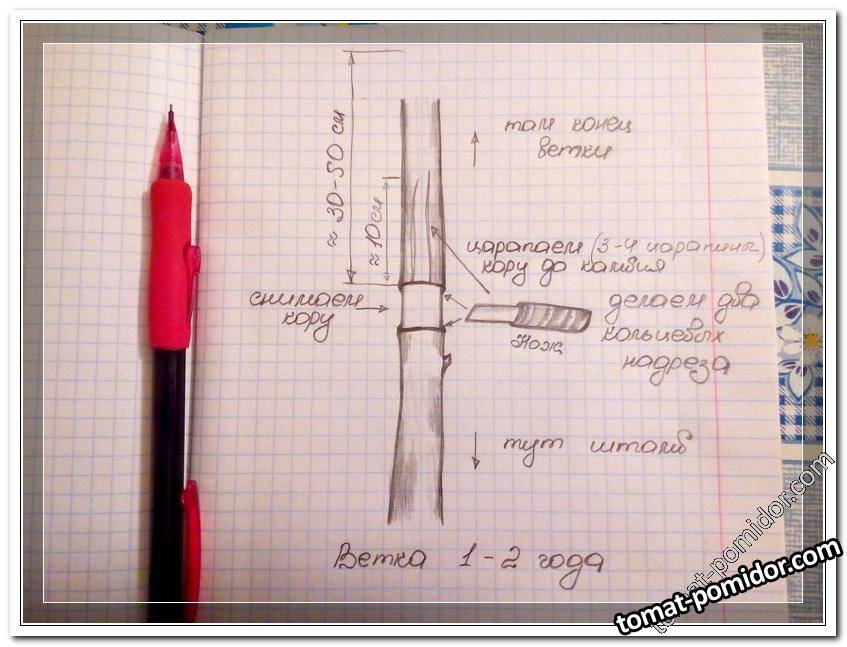 там конец
ветки
≈ 30-50 см
≈ 10см
царапаем (3-4 царапины)
кору до камбия
снимаем
кору
делаем два
кольцевых
надреза
Нож
тут штамб
Ветка 1-2 года
tomat-pomidor.com
tomat-pomidor.com